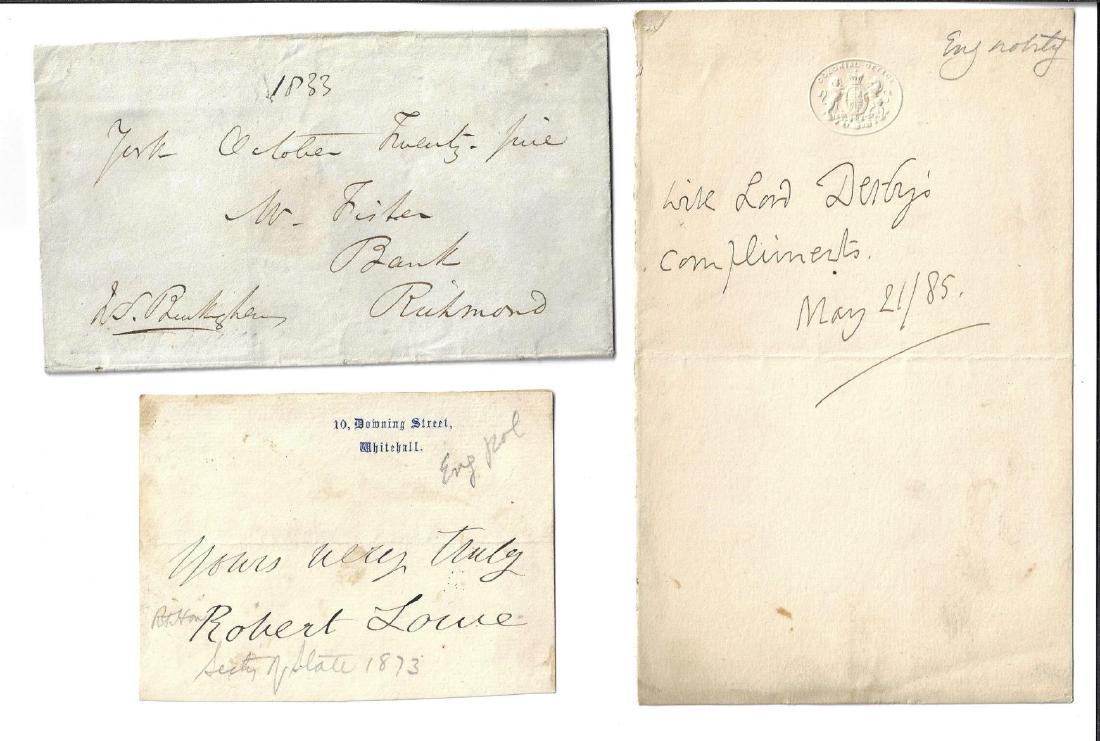 1833
York October Twenty-five
Mr Fisher
Bank
Richmond
J S. Buckingham
10, Downing Street,
Whitehall.
Eng Pol
Yours very truly
Rt Hon
Robert Lowe
Secty of State 1873
Eng nobility
COLONIAL OFFICE
With Lord Derby's
compliments.
May 21/85.